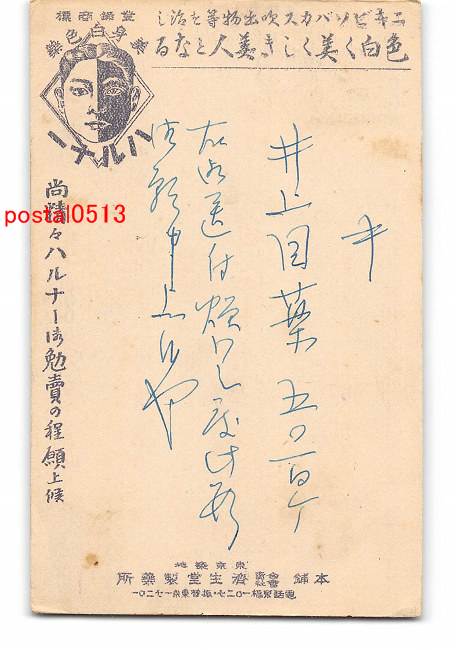 登録商標
全身色白薬
ハルナー
ニキビソバカス吹出物等を治し
色白く美しき美人となる
キ
井上目薬 五〇百ケ
右御送付煩わし度此段
御願申上候也
尚精々ハルナー御勉賣の程願上候
postal0513
東京築地
本舗 合資會社 済生堂製薬所
電話京橋一〇二七・振替東京一七二〇一